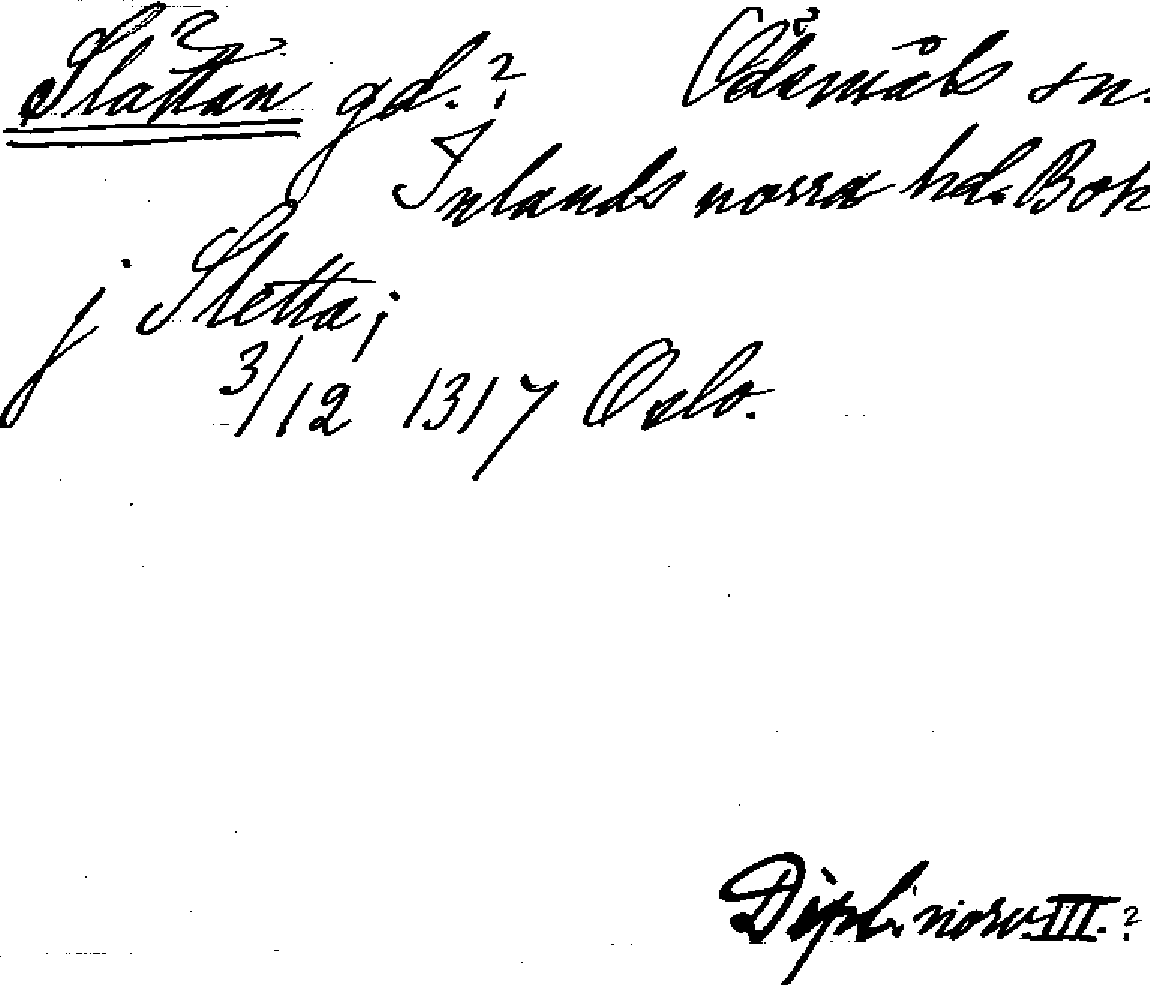 Slättan gd.? Ödsmåls sn.
Inlands norra hd. Boh
j Sletta;
3/12 1317 Oslo.
Dipl. norv. III. ?